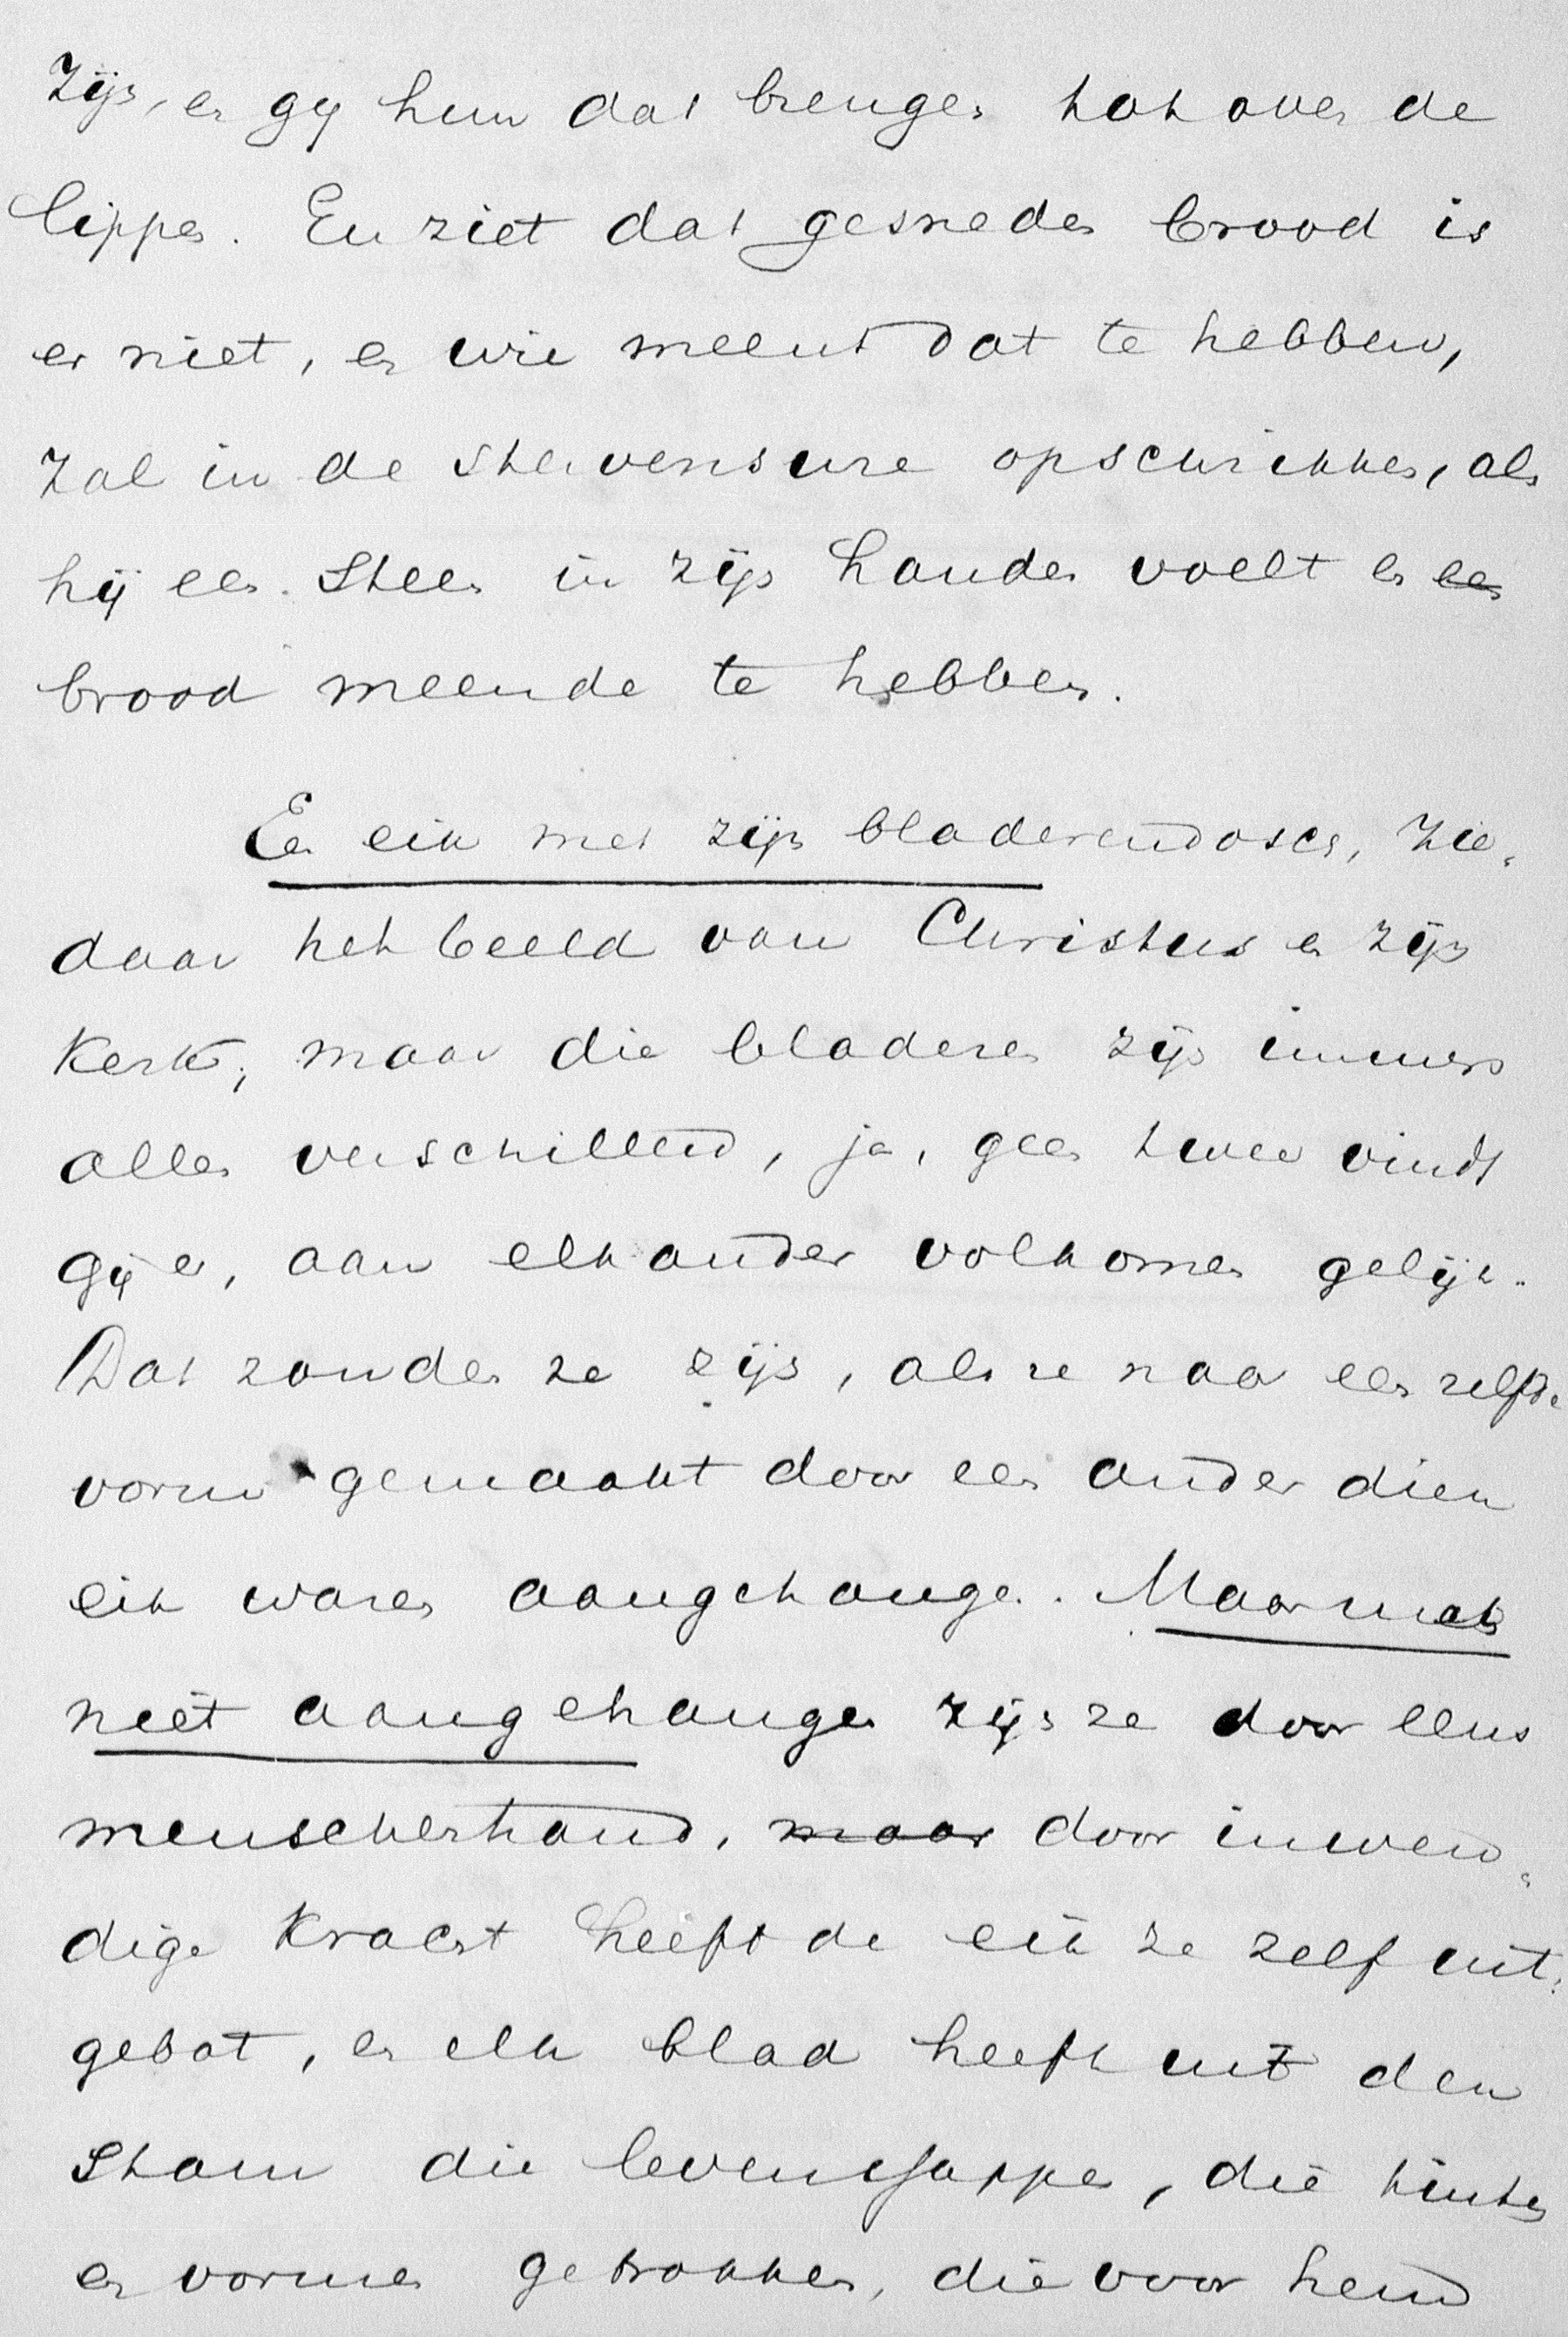 zijn, en gij hun dat brengen tot over de
lippen. En ziet dat gesneden brood is
er niet, en wie meent dat te hebben,
zal in de stervensure opschrikken, als
hij een steen in zijn handen voelt en een
brood meende te hebben.
Een eik met zijn bladerendosch, zie-
daar het beeld van Christus en zijn
Kerk; maar die bladeren zijn immers
allen verschillend, ja, geen twee vindt
gij er, aan elkander volkomen gelijk.
Dat zouden ze zijn, als ze naar een zelfde
vorm gemaakt door een ander dien
eik waren aangehangen. Maar neen
niet aangehangen zijn ze door eens
menschenhand, maar door inwen-
dige Kracht heeft de eik ze zelf uit-
gebot, en elk blad heeft uit den
Stam die levenssappen, die tinten
en vormen getrokken, die voor hem